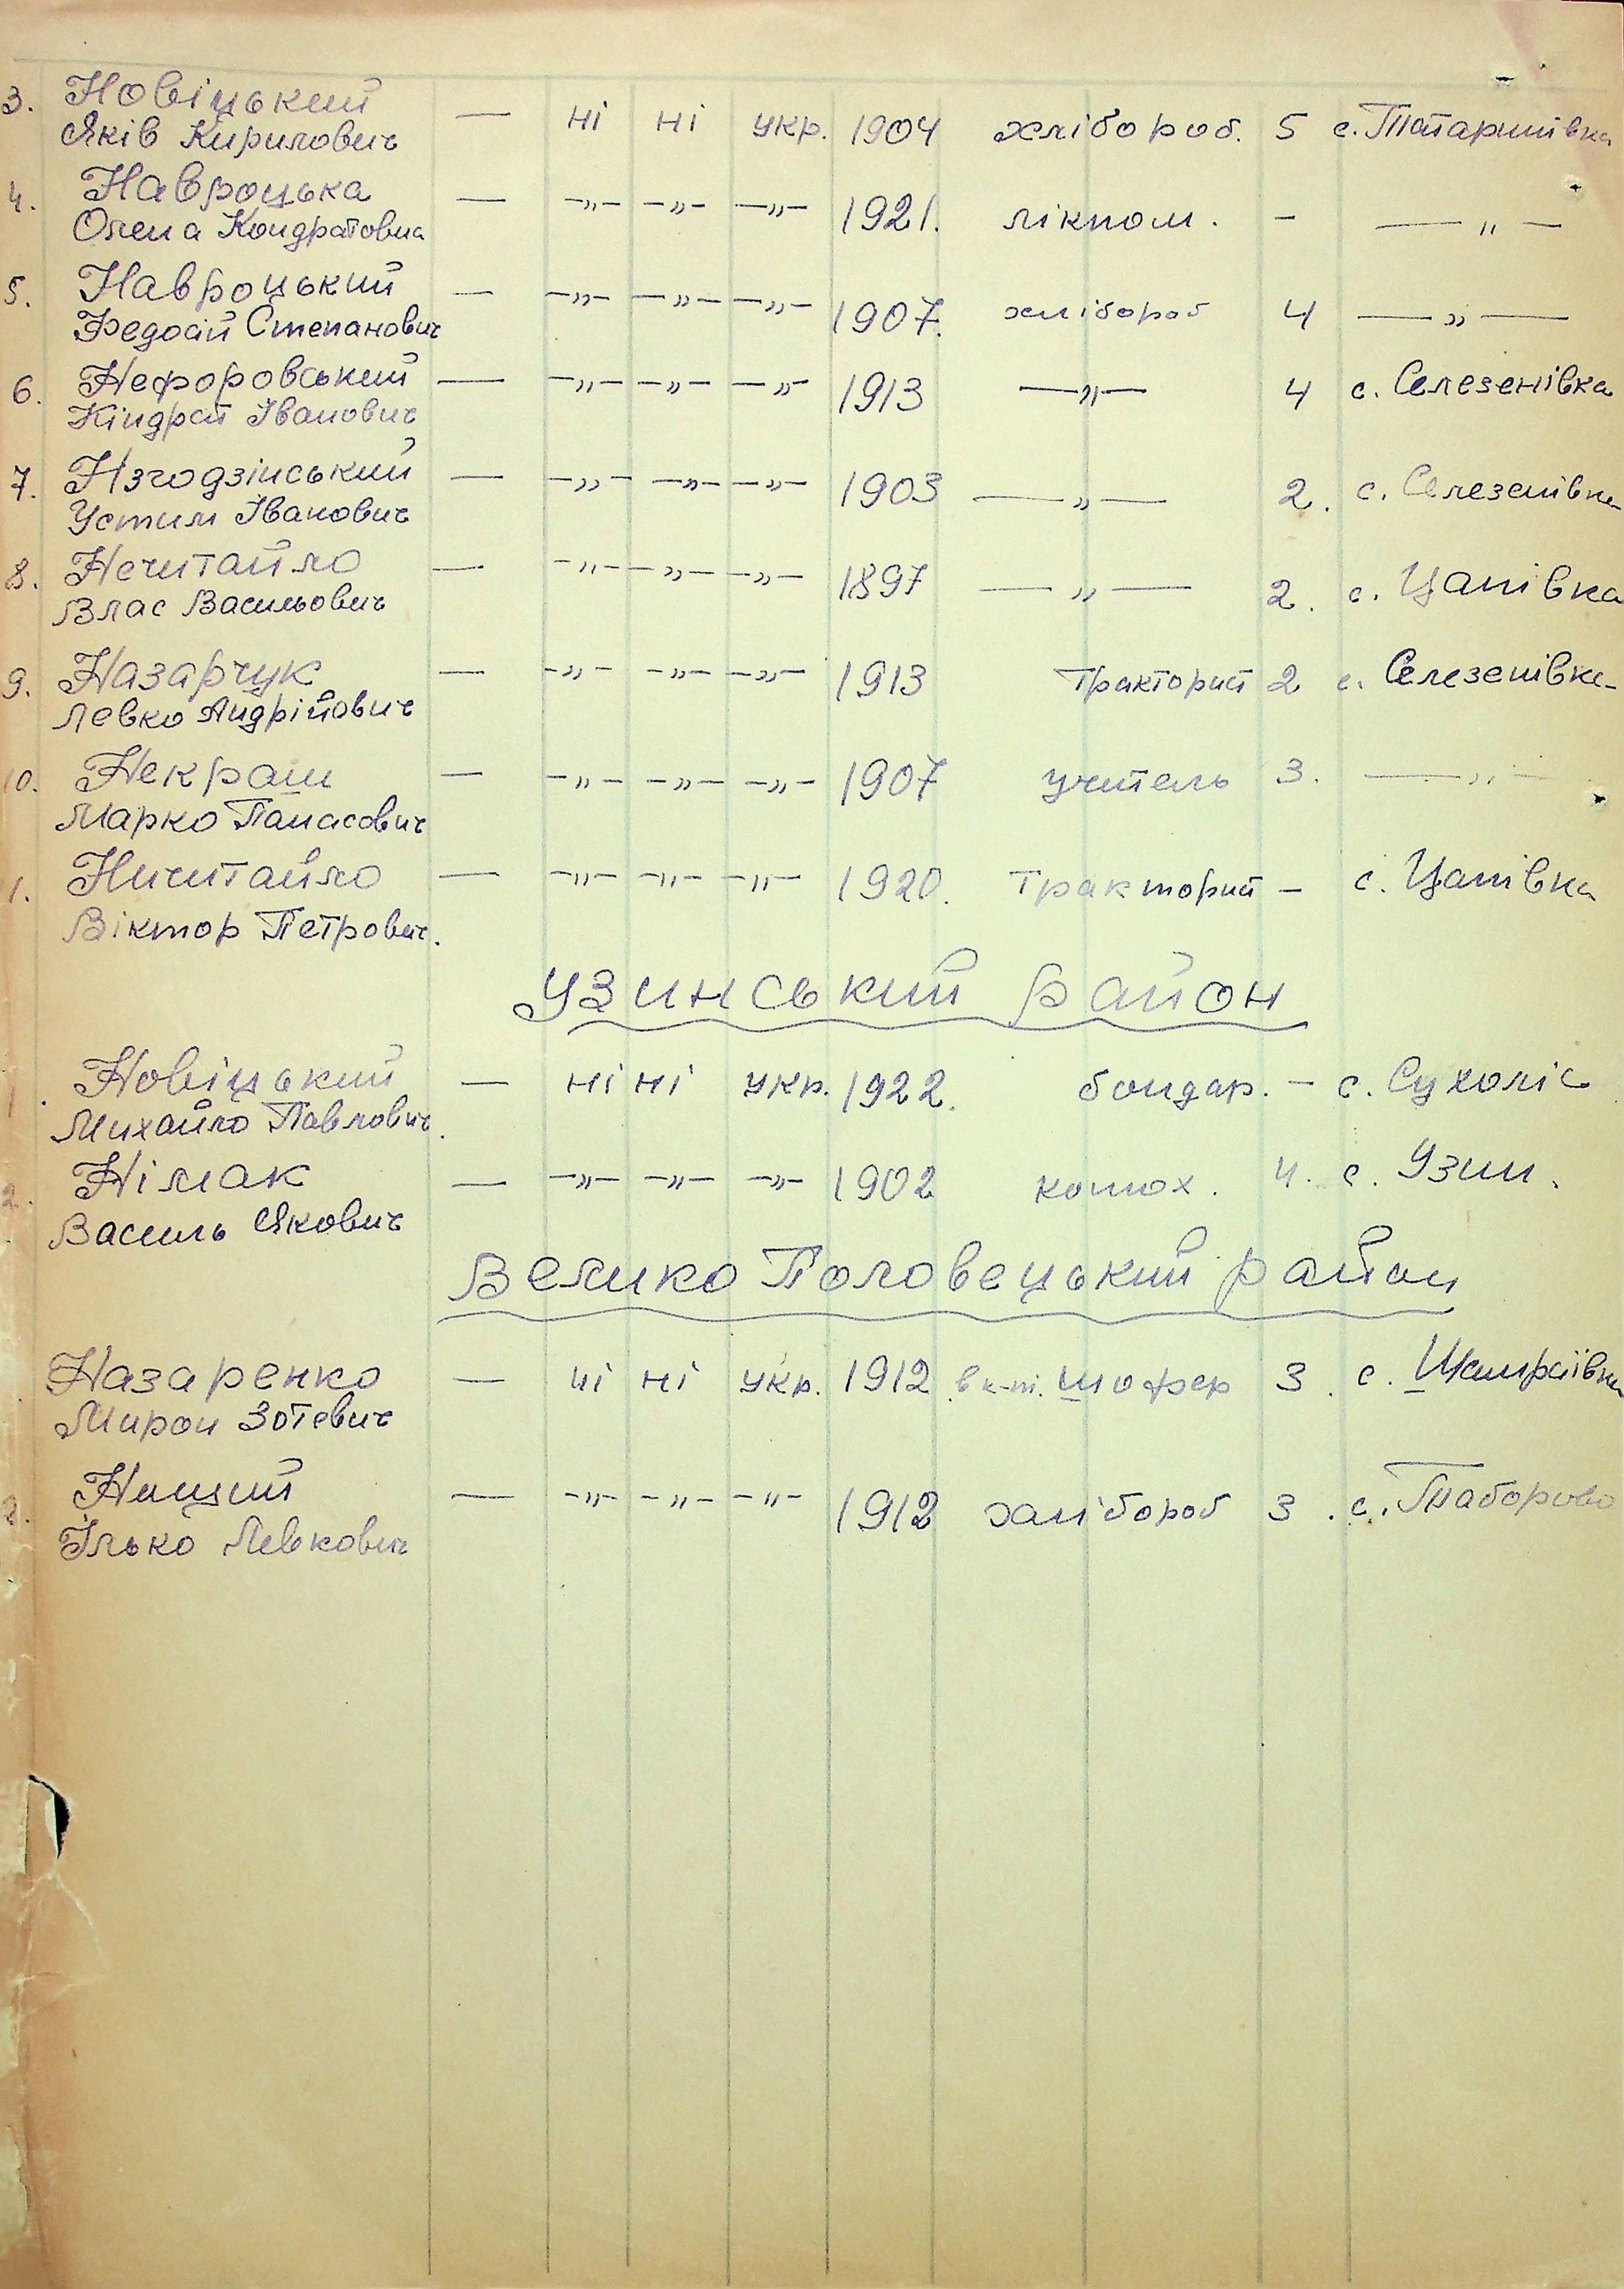 3. Новіцький — ні ні укр. 1904 хлібороб. 5 с. Татаринівка
Яків Кирилович
4. Навроцька — -„- -„- -„- 1921. лікпом. - —„—
Олена Кондратовна
5. Навроцький — -„- -„- -„- 1907. хлібороб 4 —„—
Федосій Степанович
6. Нефоровський — -„- -„- -„- 1913 —„— 4 с. Селезенівка
Кіндрат Іванович
7. Нзгодзінський — -„- -„- -„- 1903 —„— 2. с. Селезенівка
Устим Іванович
8. Нечитайло — -„- -„- -„- 1897 —„— 2. с. Цапівка
Влас Васильович
9. Назарчук — -„- -„- -„- 1913 тракторист 2 с. Селезенівка
Левко Андрійович
10. Некраш — -„- -„- -„- 1907 учитель 3. —„—
Марко Панасович
1. Ничитайло — -„- -„- -„- 1920. тракторист - с. Цапівка
Віктор Петрович.
Узинський район
1. Новіцький — ні ні укр. 1922. бондар. - с. Сухоліс
Михайло Павлович.
2. Німак — -„- -„- -„- 1902 конюх. 4. с. Узин.
Василь Якович
Велико Половецький район
Назаренко — ні ні укр. 1912. шофер 3. с. Шамраївка
Мирон Зотевич
2. Нищий — -„- -„- -„- 1912 хлібороб 3. с. Таборово
Ілько Левкович